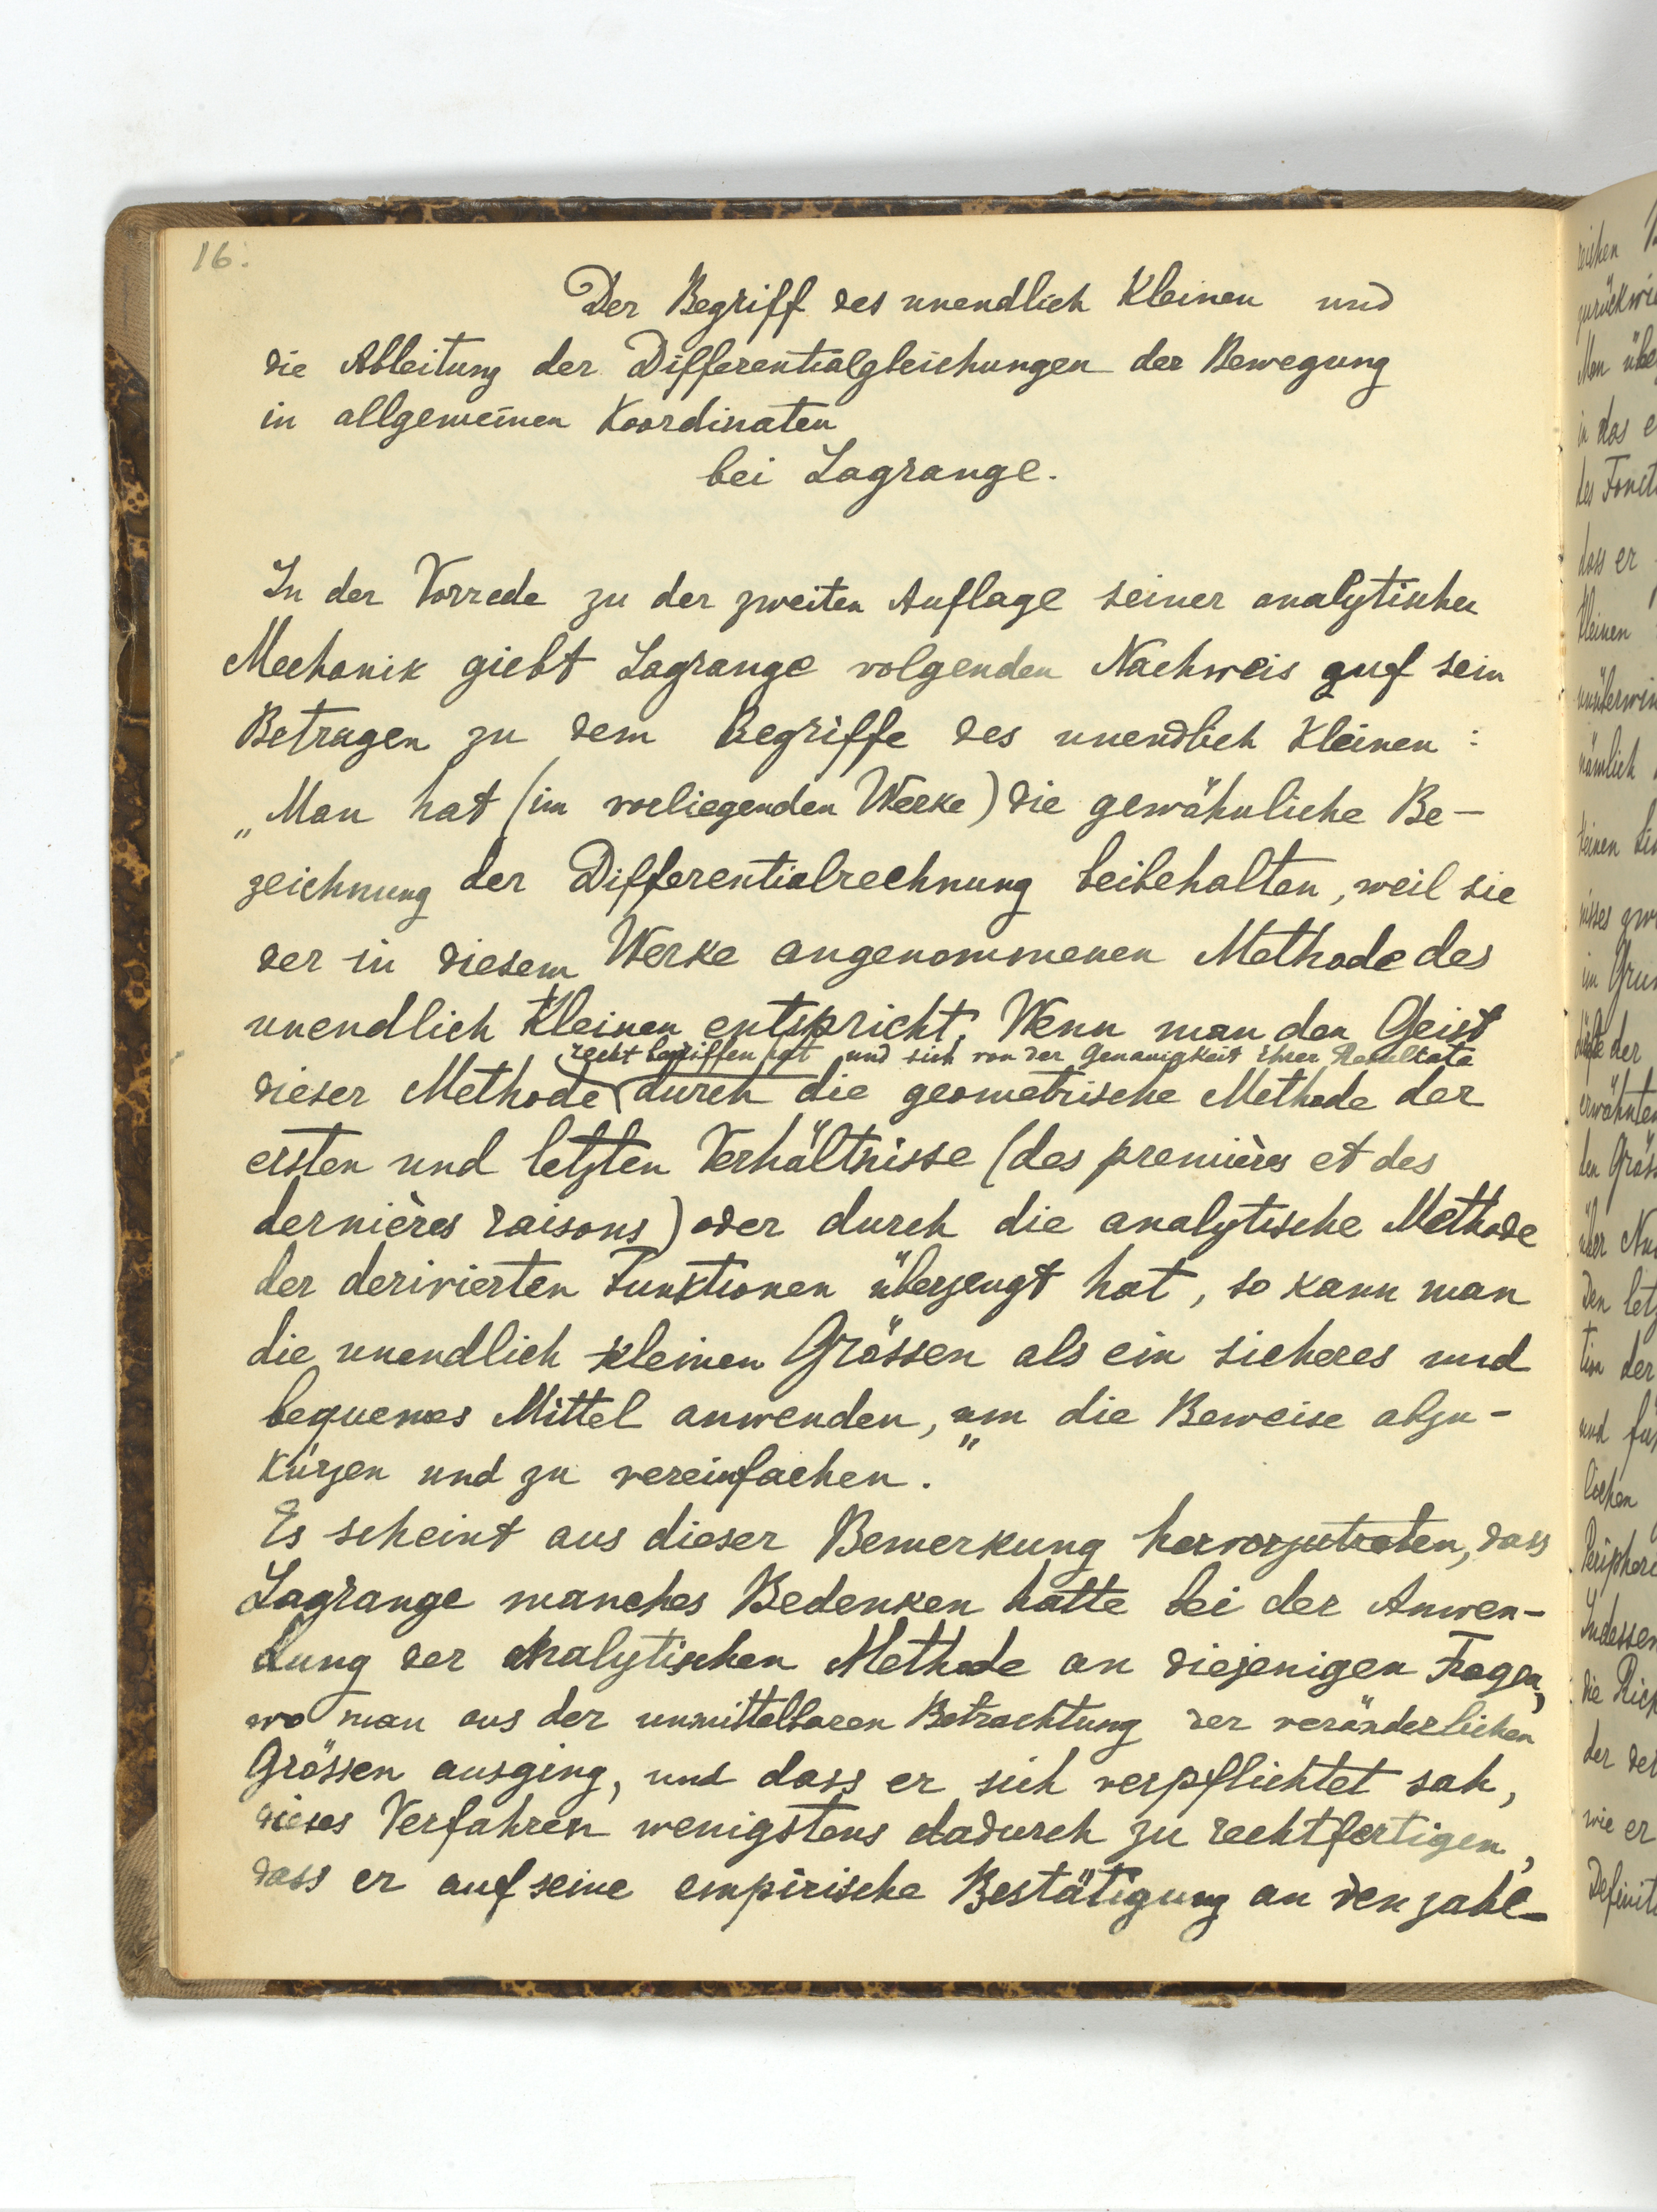 16.
Der Begriff des unendlich Kleinen und
die Ableitung der Differentialgleichungen der Bewegung
in allgemeinen Koordinaten
bei Lagrange.
In der Vorrede zu der zweiten Auflage seiner analytischen
Mechanik giebt Lagrange volgenden Nachweis auf sein
Betragen zu dem Begriffe des unendlich Kleinen :
„Man hat (im vorliegenden Werke) die gewöhnliche Be-
zeichnung der Differentialrechnung beibehalten, weil sie
der in diesem Werke angenommenen Methode des
unendlich Kleinen entspricht. Wenn man den Geist
recht begriffen hat und sich von der Genauigkeit ihrer Resultate
dieser Methode durch die geometrische Methode der
ersten und letzten Verhältnisse (des premières et des
dernières raisons) oder durch die analytische Methode
der derivierten Funktionen überzeugt hat, so kann man
die unendlich kleinen Grössen als ein sicheres und
bequemes Mittel anwenden, um die Beweise abzu-
kürzen und zu vereinfachen."
Es scheint aus dieser Bemerkung hervorzutreten, dass
Lagrange manches Bedenken hatte bei der Anwen-
dung der analytischen Methode an diejenigen Fragen,
wo man aus der unmittelbaren Betrachtung der veränderlichen
Grössen ausging, und dass er sich verpflichtet sah,
dieses Verfahren wenigstens dadurch zu rechtfertigen,
dass er auf seine empirische Bestätigung an den zahl-
zurückwi
in das e
dass er
Kleinen
nämlich
der
erwähnten
über
Den letz
und
Indessen
wie er